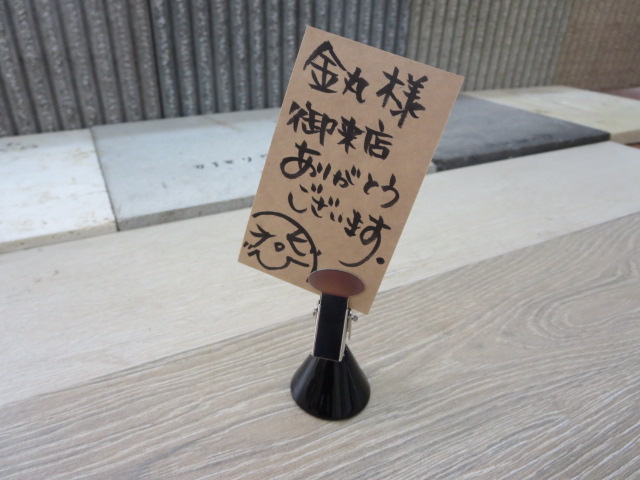 金丸様
御来店
ありがとう
ございます。